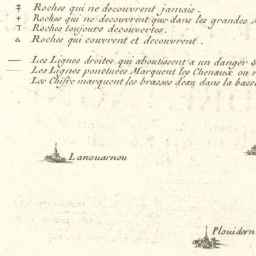 Roches qui ne decouvrent jamais.
Roches qui ne decouvrent que dans les grandes
Roches toujours decouvertes.
Roches qui couvrent et decouvrent.
Les Lignes droites qui aboutissent a un danger
Les Lignes ponctuées Marquent les Chenaux ou
Les Chifre marquent les brasses deau dans la basse
Lanouarnou
Plouider